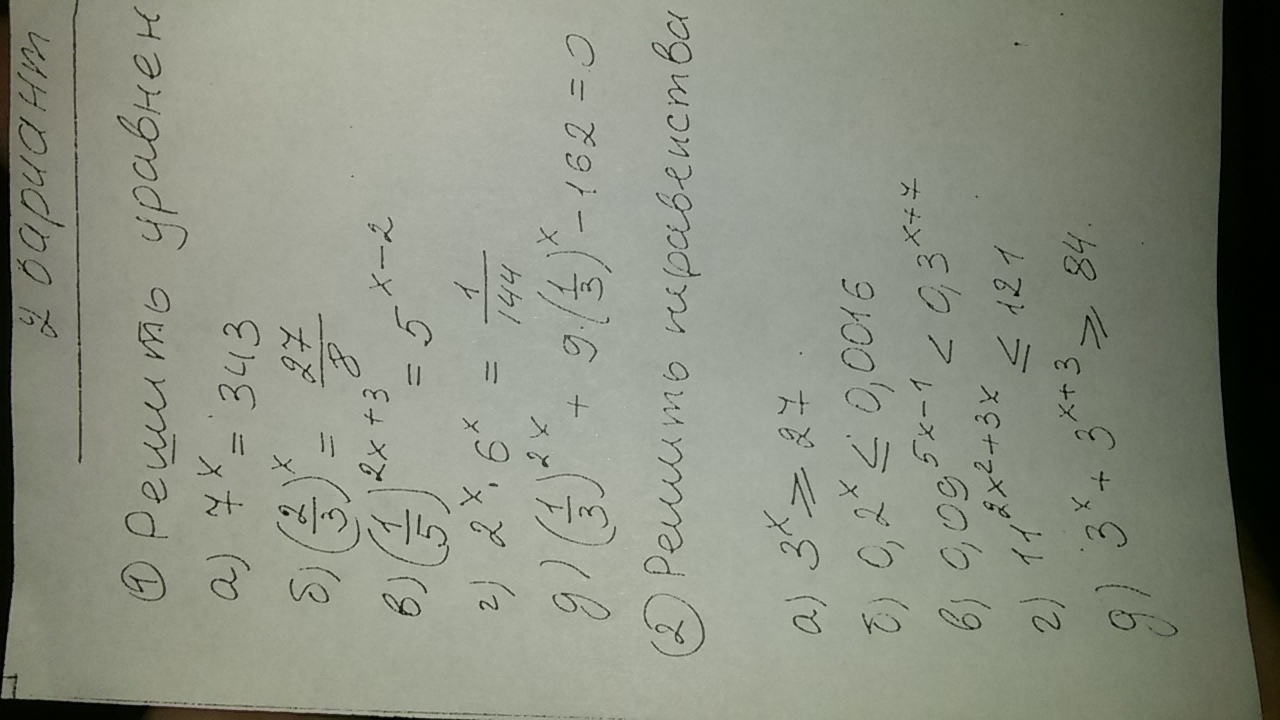 2 вариант
① Решить уравнен
а) 7^x = 343
б) (2/3)^x = 27/8
в) (1/5)^{2x+3} = 5^{x-2}
г) 2^x · 6^x = 1/144
д) (1/3)^{2x} + 9·(1/3)^x - 162 = 0
② Решить неравенства
а) 3^x ⩾ 27
б) 0,2^x ≤ 0,0016
в) 0,09^{5x-1} < 0,3^{x+7}
г) 11^{2x^2+3x} ≤ 121
д) 3^x + 3^{x+3} ⩾ 84.